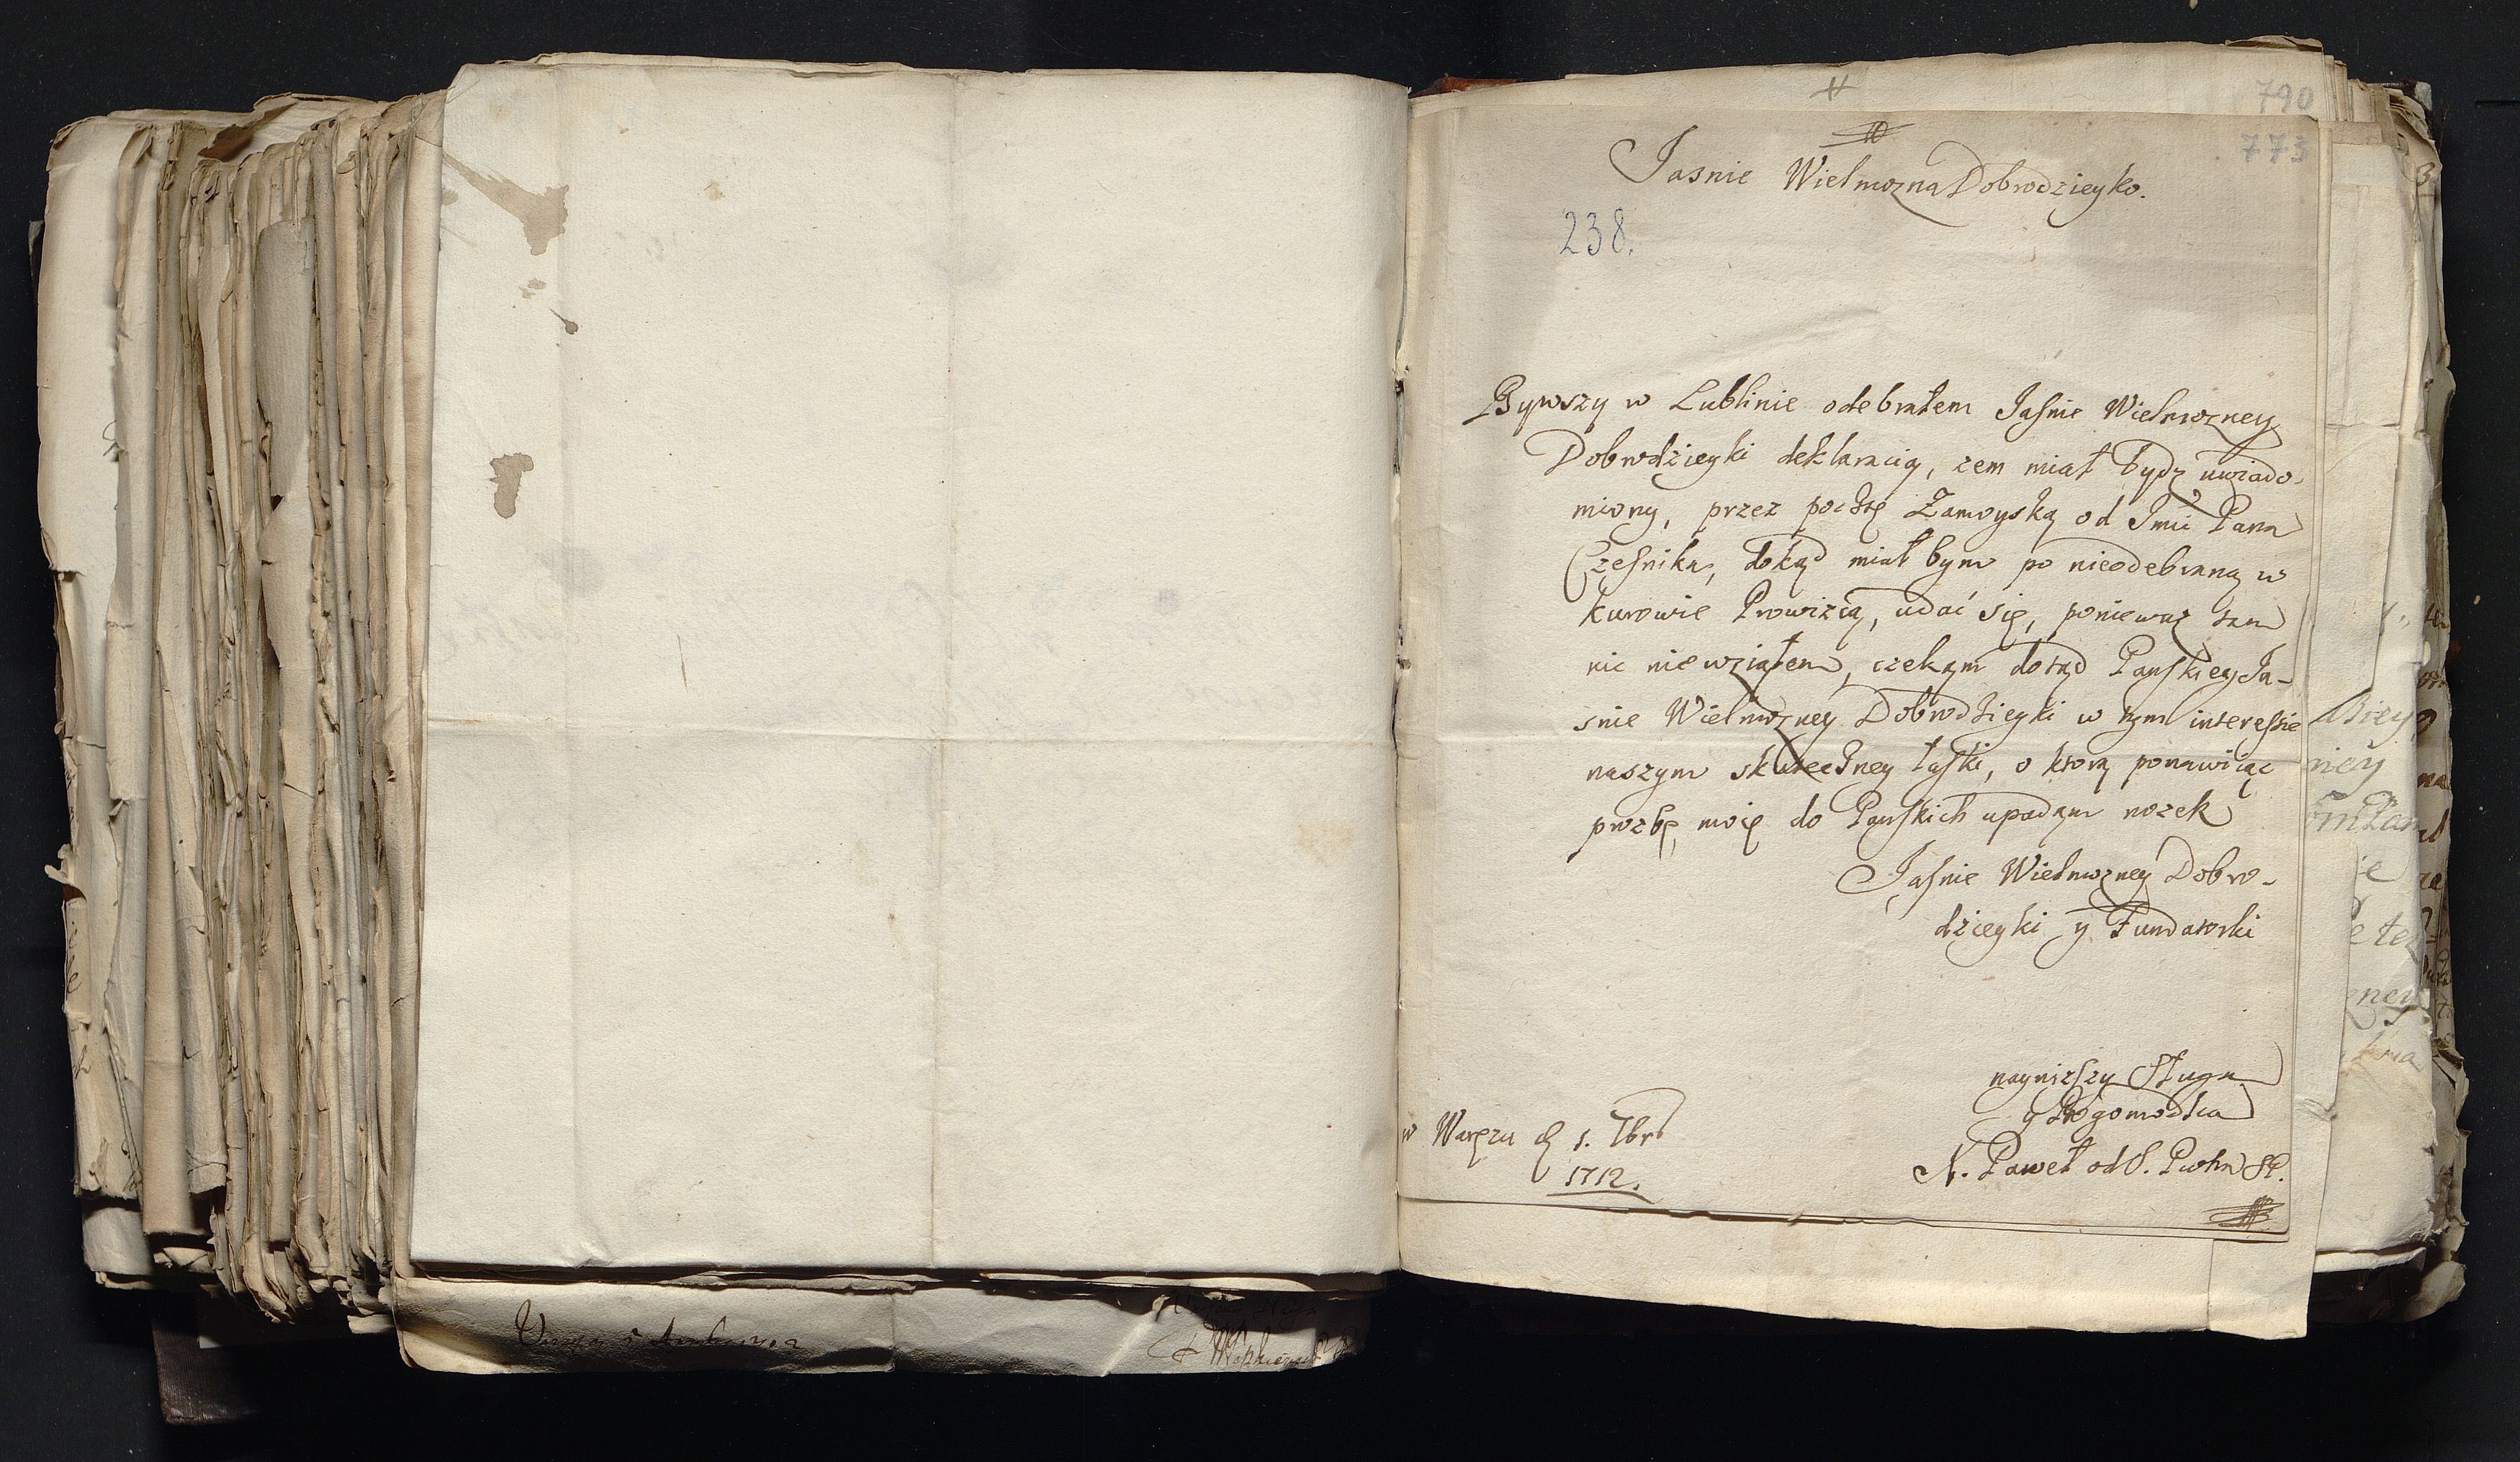 790
773
Jasnie Wielmozna Dobrodzieyko.
238.
Bywszy w Lublinie odebrałem Jaśnie Wielmozney
Dobrodzieyki deklaracią, zem miał bydz uwiado-
miony, przez pocztę Zamoyską od Jmci Pana
Cześnika, dokąd miał bym po nieodebraną w
kurowie Prowizią, udać się, poniewaz tam
nic niewziąłem, czekam dotąd Pańskiey Ja-
snie Wielmozney Dobrodzieyki w tym interesie
naszym skuteczney łaski, o ktorą ponawiąc
prozbę moię do Pańskich upadam nozek
Jaśnie Wielmozney Dobro-
dzieyki y Fundatorki
nayniższy Sługa
y Bogomodlca
X. Paweł od S. Piotra SP.
w Warężu d 1. 7br
1712.